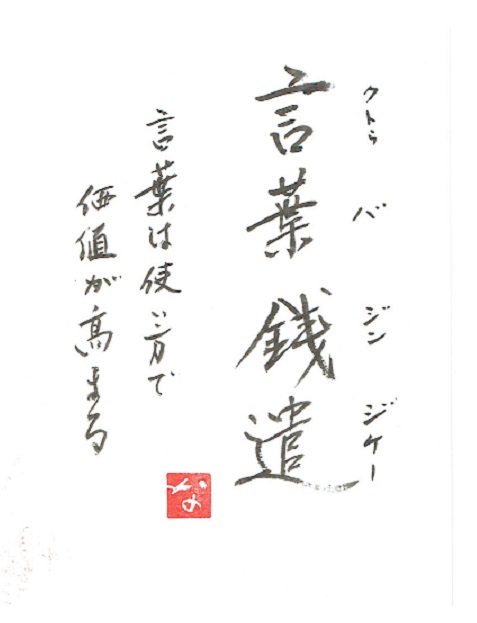 クトゥ バ ジン ジケー
言葉銭遣
言葉は使い方で
価値が高まる
な